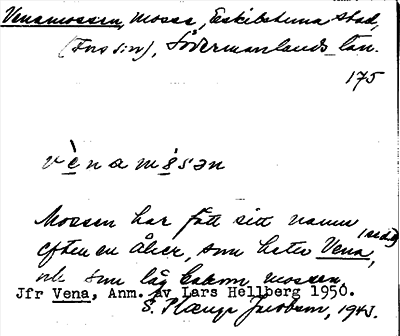 Venamossen, mosse, Eskilstuna stad,
(Fors sn), Södermanlands län.
175
vènamòsən
Mossen har fått sitt namn
efter en åker, som heter Vena,
och som låg bakom mossen.
Jfr Vena, Anm. av Lars Hellberg 1950.
S. Jacobson, 1943.